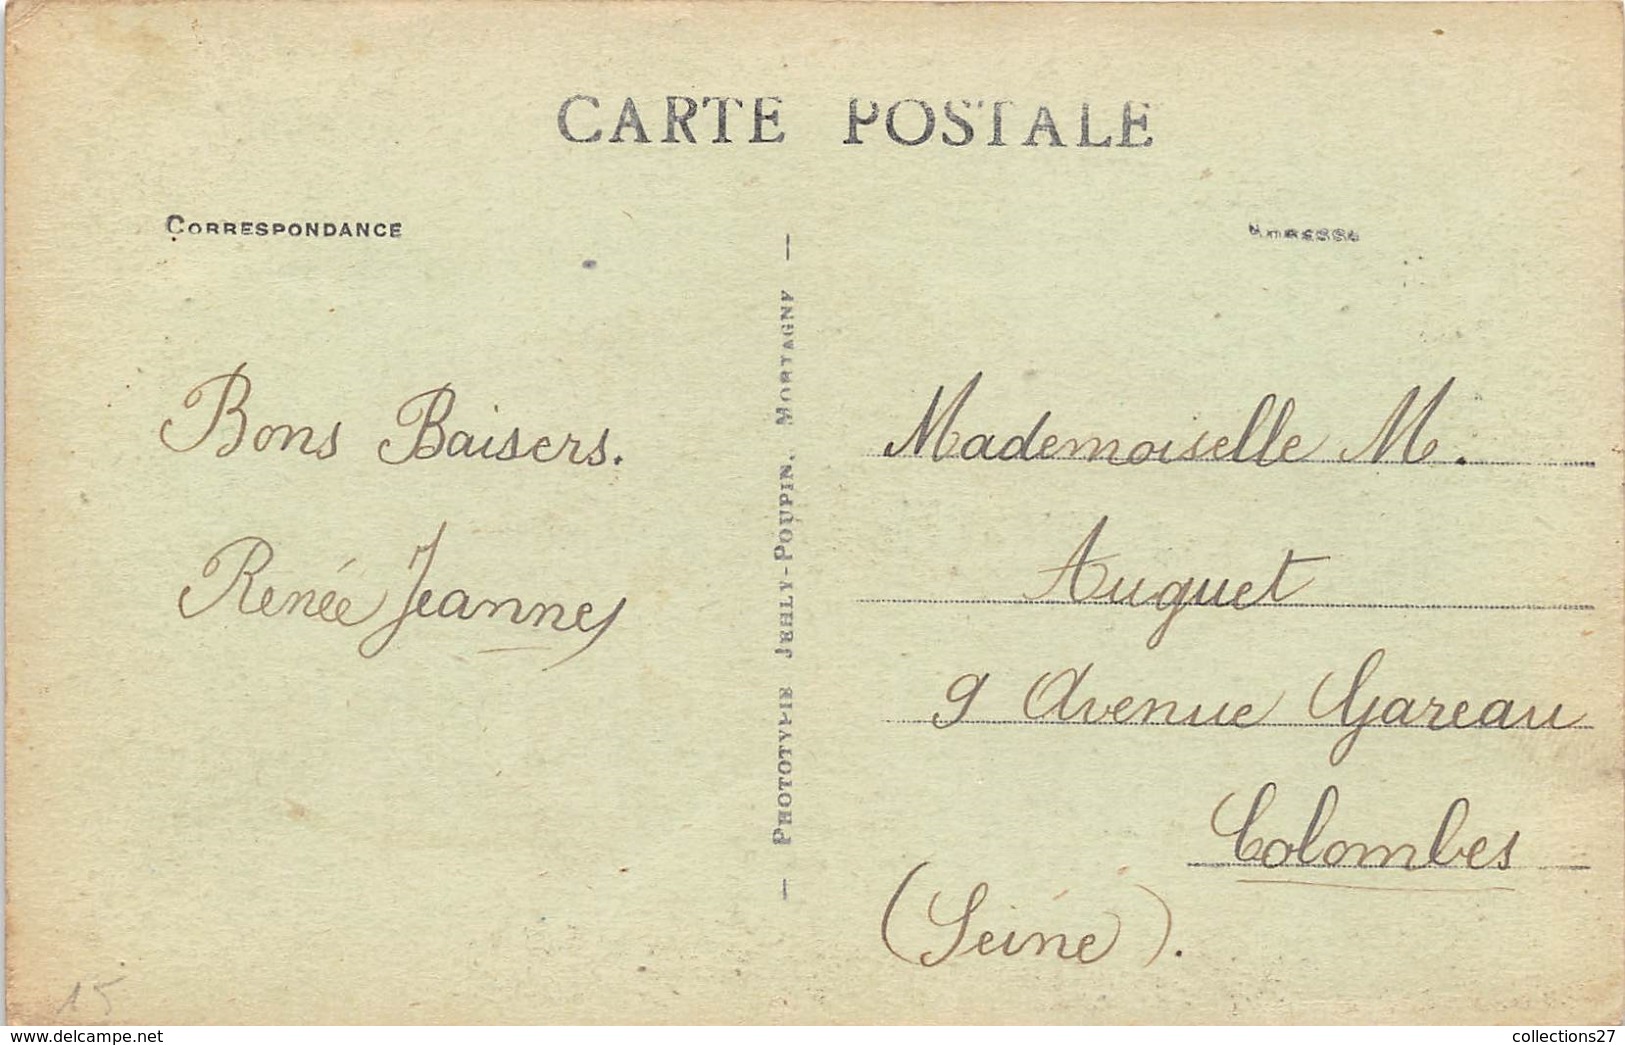 CARTE POSTALE
CORRESPONDANCE
ADRESSE
Bons Baisers.
Renée Jeanne
— PHOTOTYPIE JEHLY-POUPIN, MORTAGNY —
Mademoiselle M.
Auguet
9 Avenue Gareau
Colombes
(Seine).
15
www.delcampe.net
collections27